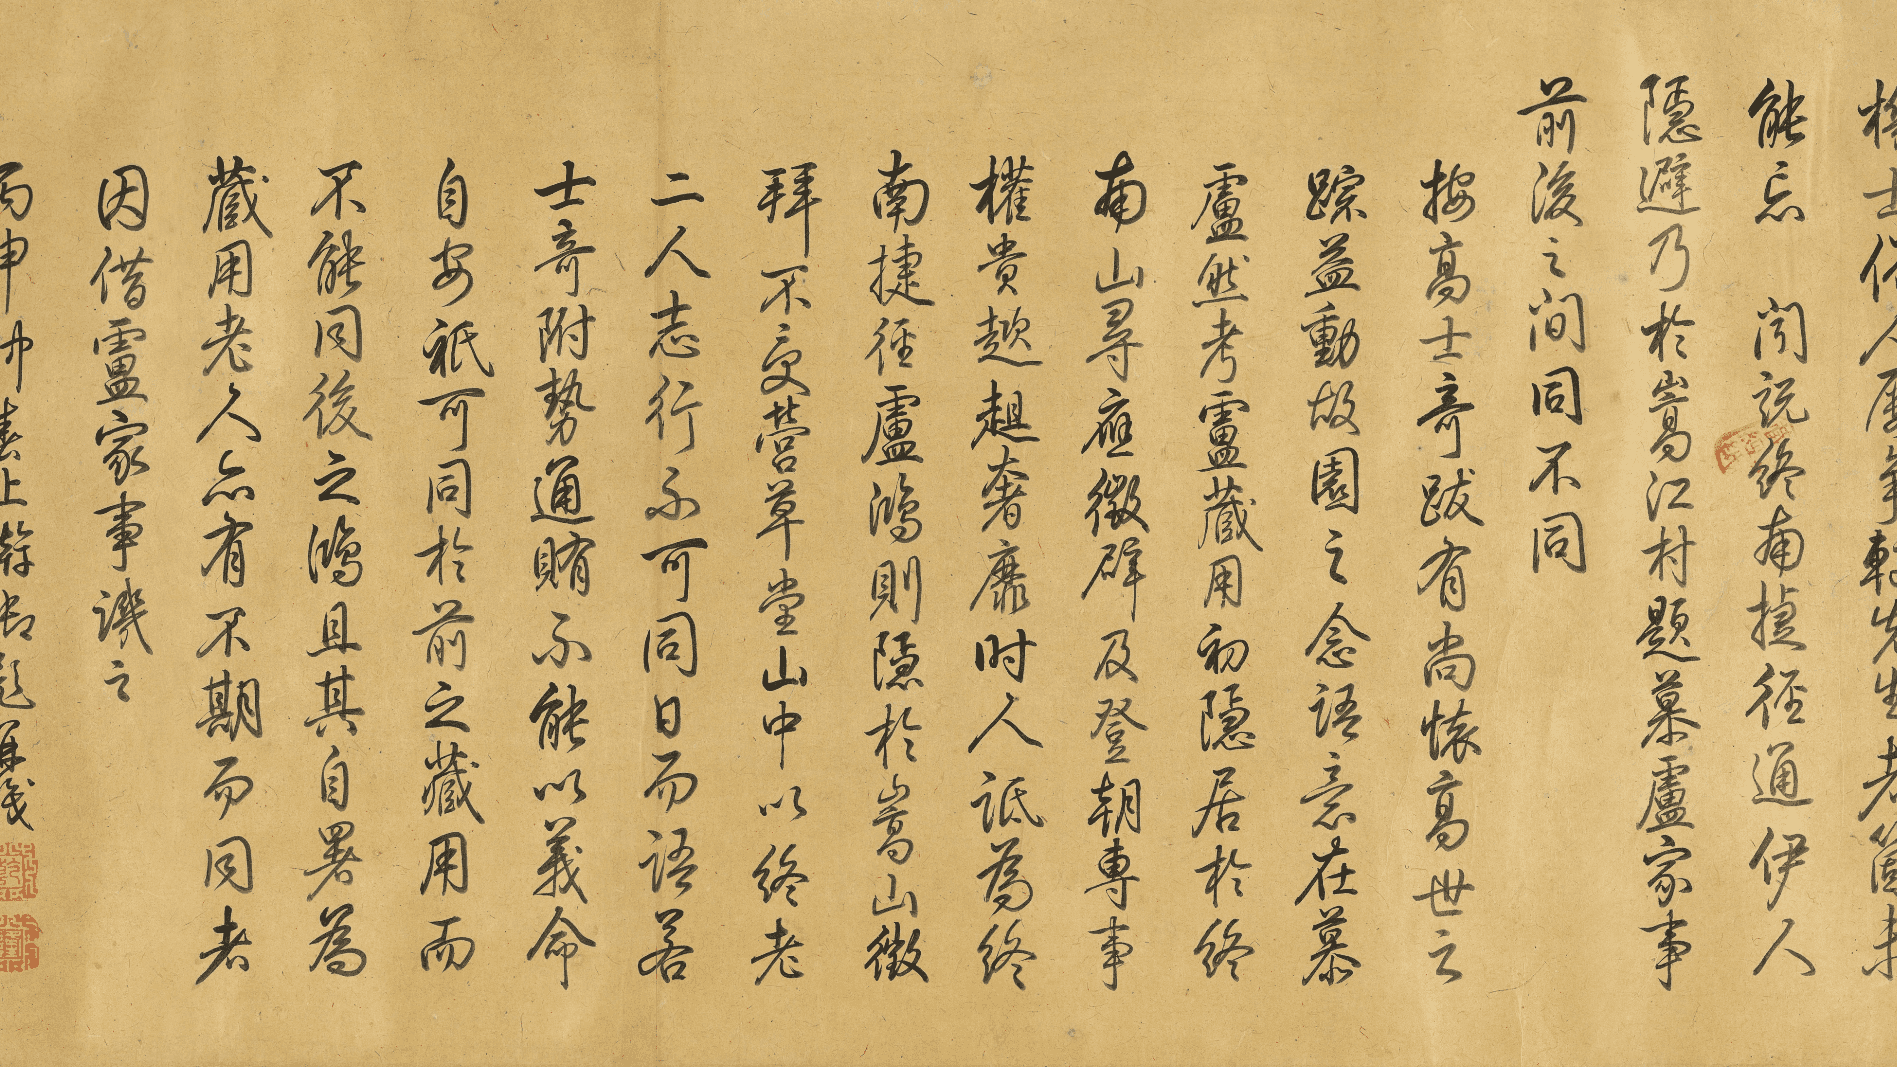 能忘 聞說終南捷徑通伊人
隱避乃於嵩江村題慕盧家事
前後之間同不同
按高士竒跋有尚懷高世之
踪益動故園之念語意在慕
盧然考盧藏用初隱居於終
南山尋應徵辟及登朝專事
權貴趑趄奢靡时人詆為終
南捷徑盧鴻則隱於嵩山徵
拜不受營草堂山中以終老
二人志行不可同日而語若
士竒附勢通賄不能以義命
自安祇可同於前之藏用而
不能同後之鴻且其自署為
藏用老人亦有不期而同者
因借盧家事譏之
丙申仲春上澣御題